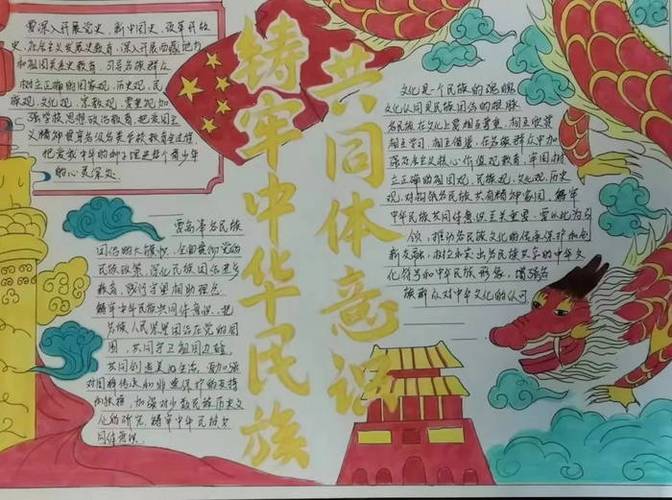 要深入开展党史、新中国史、改革开放
史、社会主义发展史教育,深入开展西藏地方
和祖国关系史教育,引导各族群众
树立正确的国家观、历史观、民
族观、文化观、宗教观,要重视加
强学校思想政治教育,把爱国主
义精神贯穿各级各类学校教育全过程
把爱我中华的种子埋进每个青少年
的心灵深处
铸牢中华民族
共同体意识
文化是一个民族的魂魄
文化认同是民族团结的根脉
各民族在文化上要相互尊重、相互欣赏
相互学习、相互借鉴,在各族群众中加
强社会主义核心价值观教育,牢固树
立正确的祖国观、民族观、文化观、历史
观,对构筑各民族共有精神家园、铸牢
中华民族共同体意识至关重要,要以此为引
领,推动各民族文化的传承保护和创
新交融,树立和突出各民族共享的中华文
化符号和中华民族形象,增强各
族群众对中华文化的认同
要高举各民族
团结的大旗帜,全面贯彻党的
民族政策,深化民族团结进步
教育,
铸牢中华民族共同体意识,把
各族人民紧紧团结在党的周
围,共同守卫祖国边疆,
共同创造美好生活,要加强
对
和扶持,加强对少数民族历史文
化的研究,铸牢中华民族共
同体意识